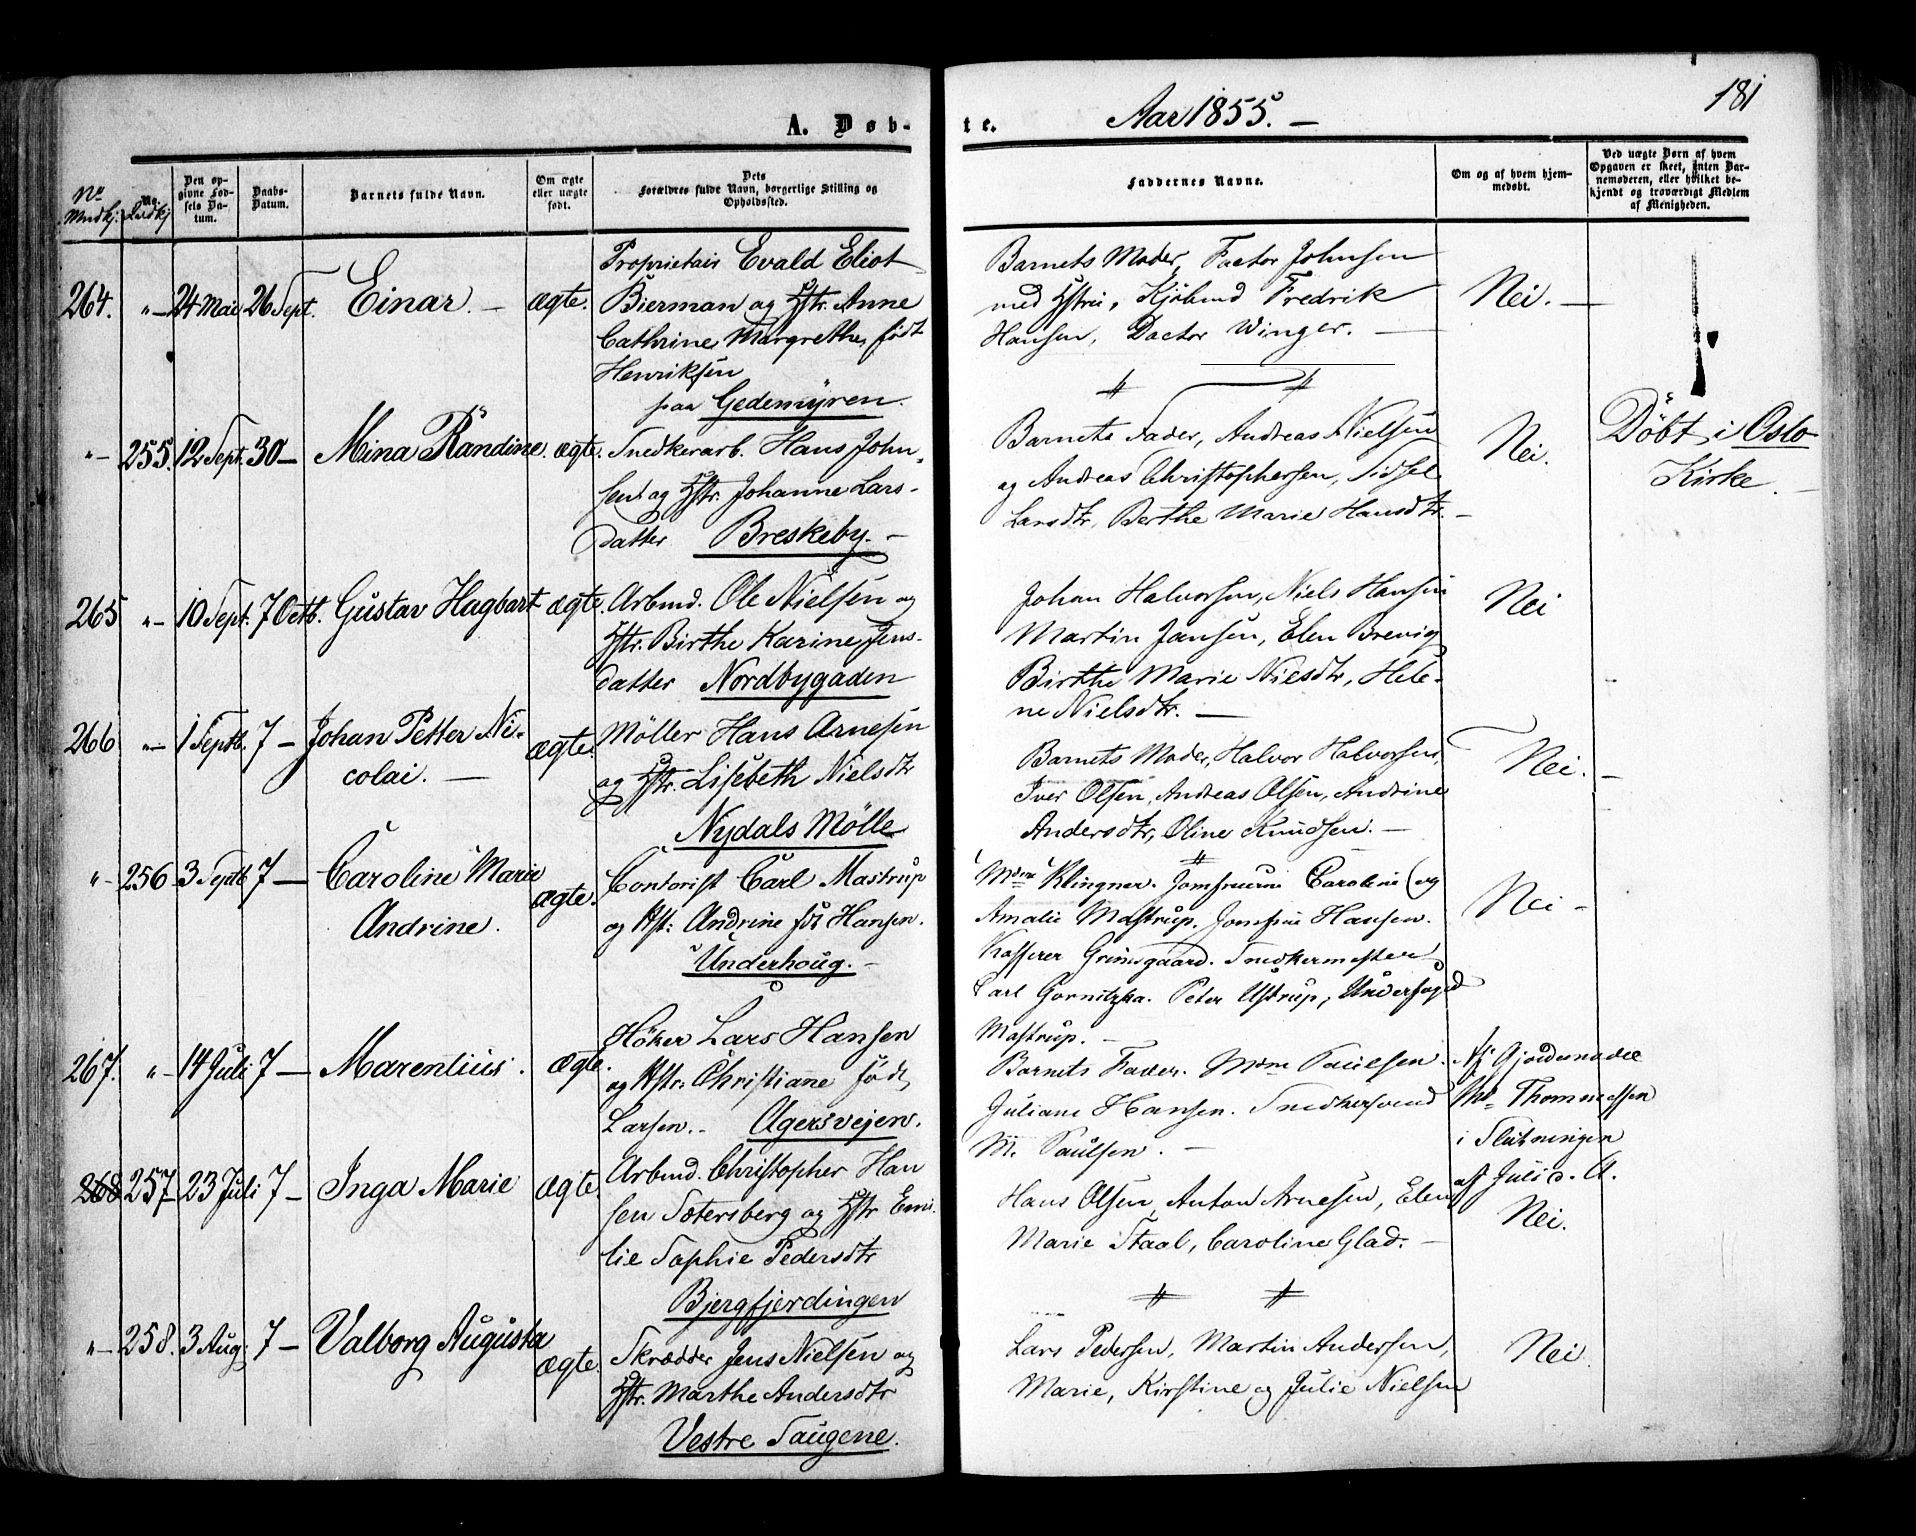 181
A. Døbte. Aar 1855. —
No Mndkj.
No Qvdkj.
Den opgivne Fødsels Datum.
Daabs-Datum.
Barnets fulde Navn.
Om ægte eller uægte født.
Dets Forældres fulde Navn, borgerlige Stilling og Opholdssted.
Faddernes Navne.
Om og af hvem hjemmedøbt.
Ved uægte Børn af hvem Opgaven er skeet, inten Barnemoderen, eller hvilket bekjendt og troværdigt Medlem af Menigheden.
264. " 24 Mai 26 Sept. Einar. — ægte.
Proprietair Evald Eliot
Bierman og Hstr. Anne
Cathrine Margrethe, født
Henriksen
paa Gedemyren.
Barnets Moder, Factor Johnsen
med Hstru, Kjöbmd Fredrik
Hansen, Doctor Winger. —
Nei. —
" 255. 12 Sept. 30 — Mina Randine. ægte.
Snedkerarb. Hans John-
sen og Hstr. Johanne Lars-
datter Breskeby. —
Barnets Fader, Andreas Nielsen
og Andreas Christophersen, Sidsel
Larsdtr, Berthe Marie Hansdtr. —
Nei.
Döbt i Oslo
Kirke. —
265 " 10 Sept. 7 Octb. Gustav Hagbart ægte.
Arbmd. Ole Nielsen og
Hstr. Birthe Karine Jens-
datter Nordbygaden
Johan Halvorsen, Niels Hansen
Martin Jansen, Elen Brevig
Birthe Marie Nielsdtr, Hele-
ne Nielsdtr. —
Nei
266 " 1 Septb. 7 — Johan Petter Ni-
colai. — ægte.
Möller Hans Arnesen
og Hstr. Lisebeth Nielsdtr
Nydals Mölle
Barnets Moder, Halvor Halvorsen,
Iver Olsen, Andreas Olsen, Andrine
Andersdtr, Oline Knudsen. —
Nei. —
" 256. 3 Septb 7 — Caroline Marie
Andrine. ægte.
Contorist Carl Mastrup
og Hst: Andrine fdt Hansen.
Underhoug. —
Mdme Klingner. Jomfruerne Caroline og
Amalie Mastrup. Jomfrue Hansen.
Kasserer Grimsgaard. Snedkermester
Carl Gornitzka. Peter Ustrup, Underfoged
Mastrup. —
Nei -
267. " 14 Juli 7 — Marentius. ægte.
Höker Lars Hansen
og Hstr. Christiane født
Larsen. Agersvejen.
Barnets Fader. Mdm Paulsen.
Juliane Hansen. Snedkersvend
M. Paulsen. —
Af Gjordemoder
Thommessen
i Slutningen
af Juli d. A.
268 257 23 Juli 7 — Inga Marie ægte.
Arbmd. Christopher Han
sen Sætersberg og Hstr Emi-
lie Sophie Pedersdtr
Bjergfjerdingen
Hans Olsen, Anton Arnesen, Elen
Marie Staal, Caroline Glad. —
Nei.
" 258. 3 Aug. 7 — Valborg Augusta ægte.
Skrædder Jens Nielsen og
Hstr. Marthe Andersdtr
Vestre Saugene.
Lars Pedersen, Martin Andersen,
Marie, Kirstine og Julie Nielsen
Nei.